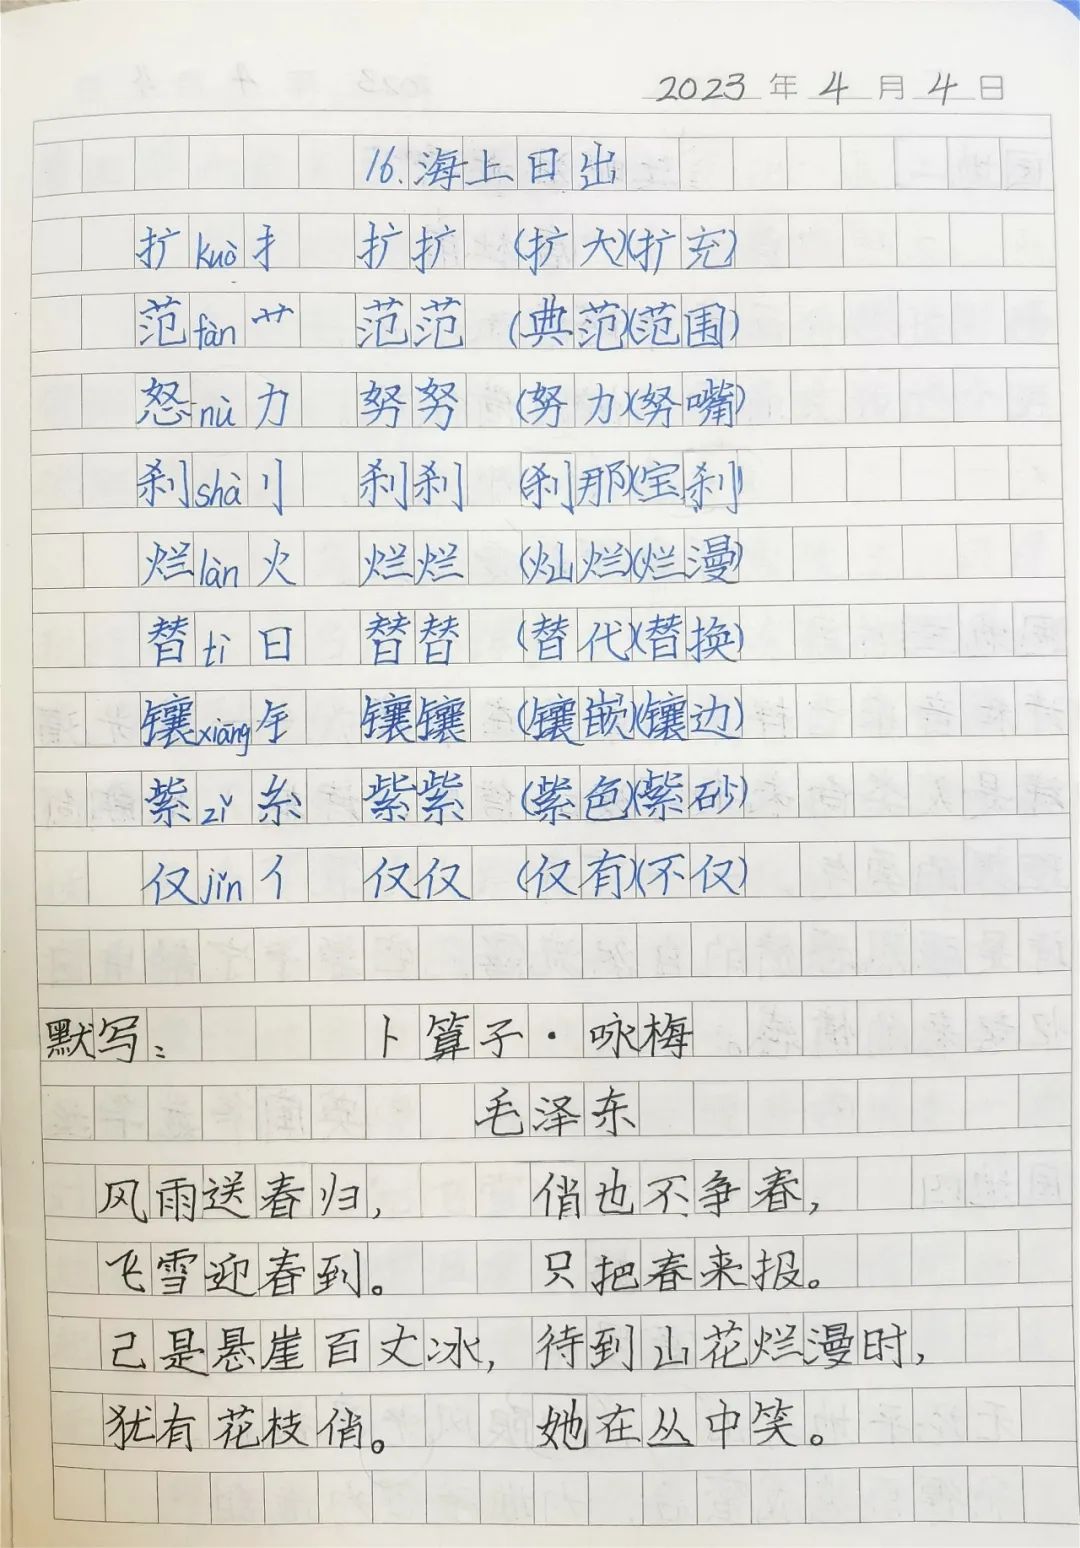 2023年4月4日
16.海上日出
扩kuò扌 扩扩 (扩大)(扩充)
范fàn艹 范范 (典范)(范围)
怒nù力 努努 (努力)(努嘴)
刹shà刂 刹刹 (刹那)(宝刹)
烂làn火 烂烂 (灿烂)(烂漫)
替tì日 替替 (替代)(替换)
镶xiāng钅 镶镶 (镶嵌)(镶边)
紫zǐ糸 紫紫 (紫色)(紫砂)
仅jǐn亻 仅仅 (仅有)(不仅)
默写: 卜算子·咏梅
毛泽东
风雨送春归, 俏也不争春,
飞雪迎春到。 只把春来报。
己是悬崖百丈冰, 待到山花烂漫时,
犹有花枝俏。 她在丛中笑。